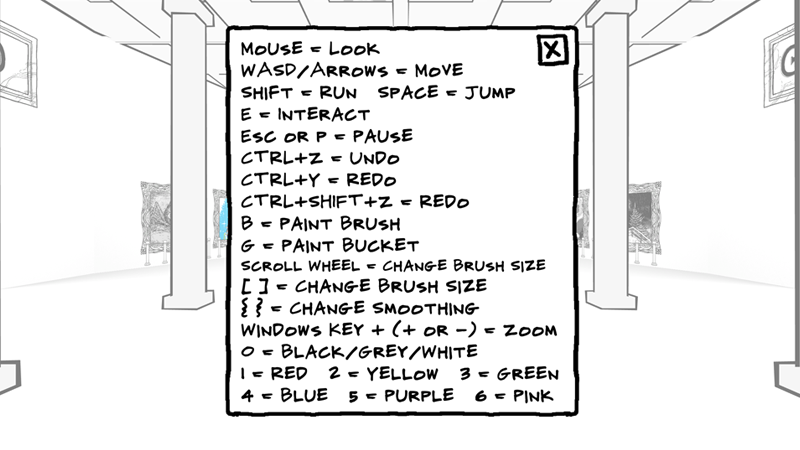 MOUSE = LOOK
X
WASD/ARROWS = MOVE
SHIFT = RUN SPACE = JUMP
E = INTERACT
ESC OR P = PAUSE
CTRL+Z = UNDO
CTRL+Y = REDO
CTRL+SHIFT+Z = REDO
B = PAINT BRUSH
G = PAINT BUCKET
SCROLL WHEEL = CHANGE BRUSH SIZE
[ ] = CHANGE BRUSH SIZE
{ } = CHANGE SMOOTHING
WINDOWS KEY + (+ OR -) = ZOOM
0 = BLACK/GREY/WHITE
1 = RED 2 = YELLOW 3 = GREEN
4 = BLUE 5 = PURPLE 6 = PINK